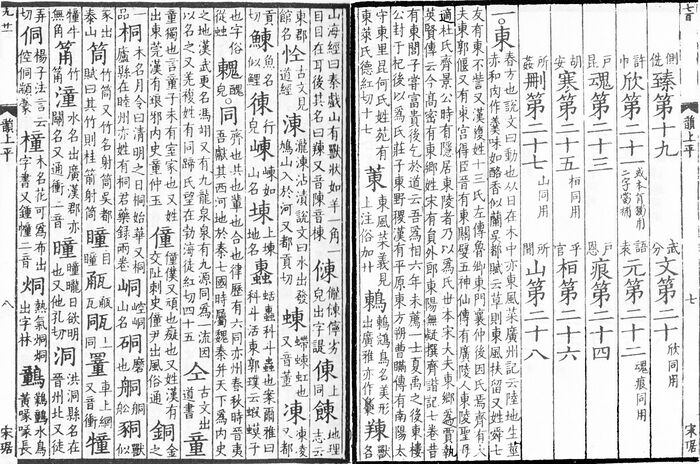 側詵臻第十九　武分文第二十欣同用
許巾欣第二十一　語袁元第二十二魂痕同用
戶昆魂第二十三　戶恩痕第二十四
胡安寒第二十五桓同用　胡官桓第二十六
所姦刪第二十七山同用　所間山第二十八
一東春方也說文曰動也从日在木中亦東風菜廣州記云陸地生莖
赤和肉作羹味如酪香似蘭吳都賦云草則東風扶留又姓舜七
友有東不訾又漢複姓十三氏左傳魯卿東門襄仲後因氏焉齊有大
夫東郭偃又有東宮得臣晉有東關嬖五神仙傳有廣陵人東陵聖母
適杜氏齊景公時有隱居東陵者乃以爲氏世本宋大夫東鄉爲賈執
英賢傳云今高密有東鄉姓宋有員外郎東陽無疑撰齊諧記七卷昔
有東閭子嘗富貴後乞於道云吾爲相六年未薦一士夏禹之後東樓
公封于杞後以爲氏莊子東野稷漢有平原東方朔曹瞞傳有南陽太
守東里昆何氏姓苑有東萊氏德紅切十七菄東風菜義見上注俗加艹鶇鶇鵍鳥名美形出廣雅亦作䍶獸名
山海經曰秦戲山有獸狀如羊一角一目目在耳後其名曰䍶又音陳音棟倲儱倲儜劣皃出字諟倲上同餗地理志云
東郡館名𢘐古文見道經涷瀧涷沾漬說文曰水出發鳩山入於河又都貢切蝀螮蝀虹也又音董凍凍凌又都
貢切鯟魚名似鯉𢔅行皃崠崠如山名埬上同科斗蟲也案爾雅曰科斗活東郭璞云蝦蟆子
也字俗從虫醜皃同齊也共也輩也合也律歷有六同亦州春秋時晉夷吾獻其西河地於秦七國時屬魏秦并天下爲內史
之地漢武更名馮翊又有九龍泉泉有九源同爲一流因以名之又羌複姓有同蹄氏望在勃海徒紅切四十五仝古文出道書童
童獨也言童子未有室家也又姓出東莞漢有琅邪內史童仲玉僮僮僕又頑也癡也又姓漢有交阯刺史僮尹出風俗通銅金之一
品桐木名月令曰清明之日桐始華又桐廬縣在嚴州亦姓有桐君藥錄兩卷峒崆峒山名硐磨也舸舟硐𧱁獸似
豕出泰山筒竹筒又竹名射筒吳都賦曰其竹則桂箭射筒瞳瞳子上同罿車上網犝
犝牛無角筩竹筩潼水名出廣漢郡亦關名又通衝二音曈曈曨日欲明也又他孔切洞洪洞縣名在晉州北又徒
弄切侗楊子法言云倥侗顓蒙橦木名花可爲布出字書又鍾幢二音烔熱氣烔烔出字林黃喙喙長
韻上平　七　宋琚
韻上平　八　宋琚